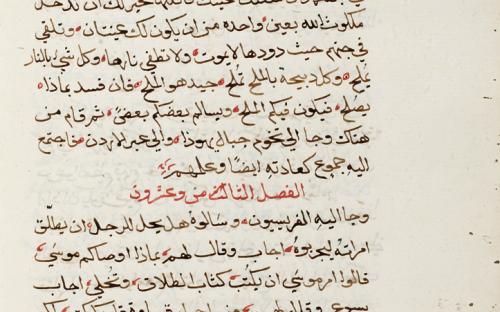 ملكوت الله بعين واحده من ان يكون لك عينتان وتلقي
في جهنم حيث دودها لا يموت ولا تطفي نارها وكل شي بالنار
يملح وكل دبيحة بالملح تملح جيد هو الملح فان فسد بماذا
يصلح فيكون فيكم الملح ويسالم بعضكم بعضي ثم قام من
هناك وجا الي تخوم جبال يهوذا والي عبر الاردن فاجتمع
اليه جموع كعادته ايضا وعلمهم
الفصل الثالث من وعشرون
وجا اليه الفريسيون وسالوه هل يحل للرجل ان يطلق
امراته ليجربوه اجاب وقال لهم بماذا اوصاكم موسي
قالوا امر موسي ان يكتب كتاب الطلاق وتخلي اجاب
يسوع وقال لهم